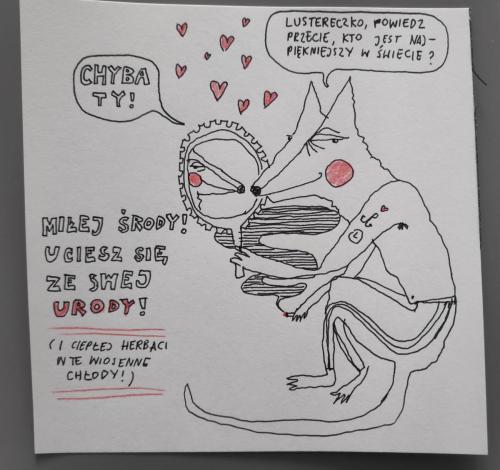 LUSTERECZKO, POWIEDZ
PRZECIE, KTO JEST NAJ-
PIĘKNIEJSZY W ŚWIECIE?
CHYBA
TY!
MIŁEJ ŚRODY!
UCIESZ SIĘ,
ZE SWEJ
URODY!
(I CIEPŁEJ HERBACI
W TE WIOSENNE
CHŁODY!)